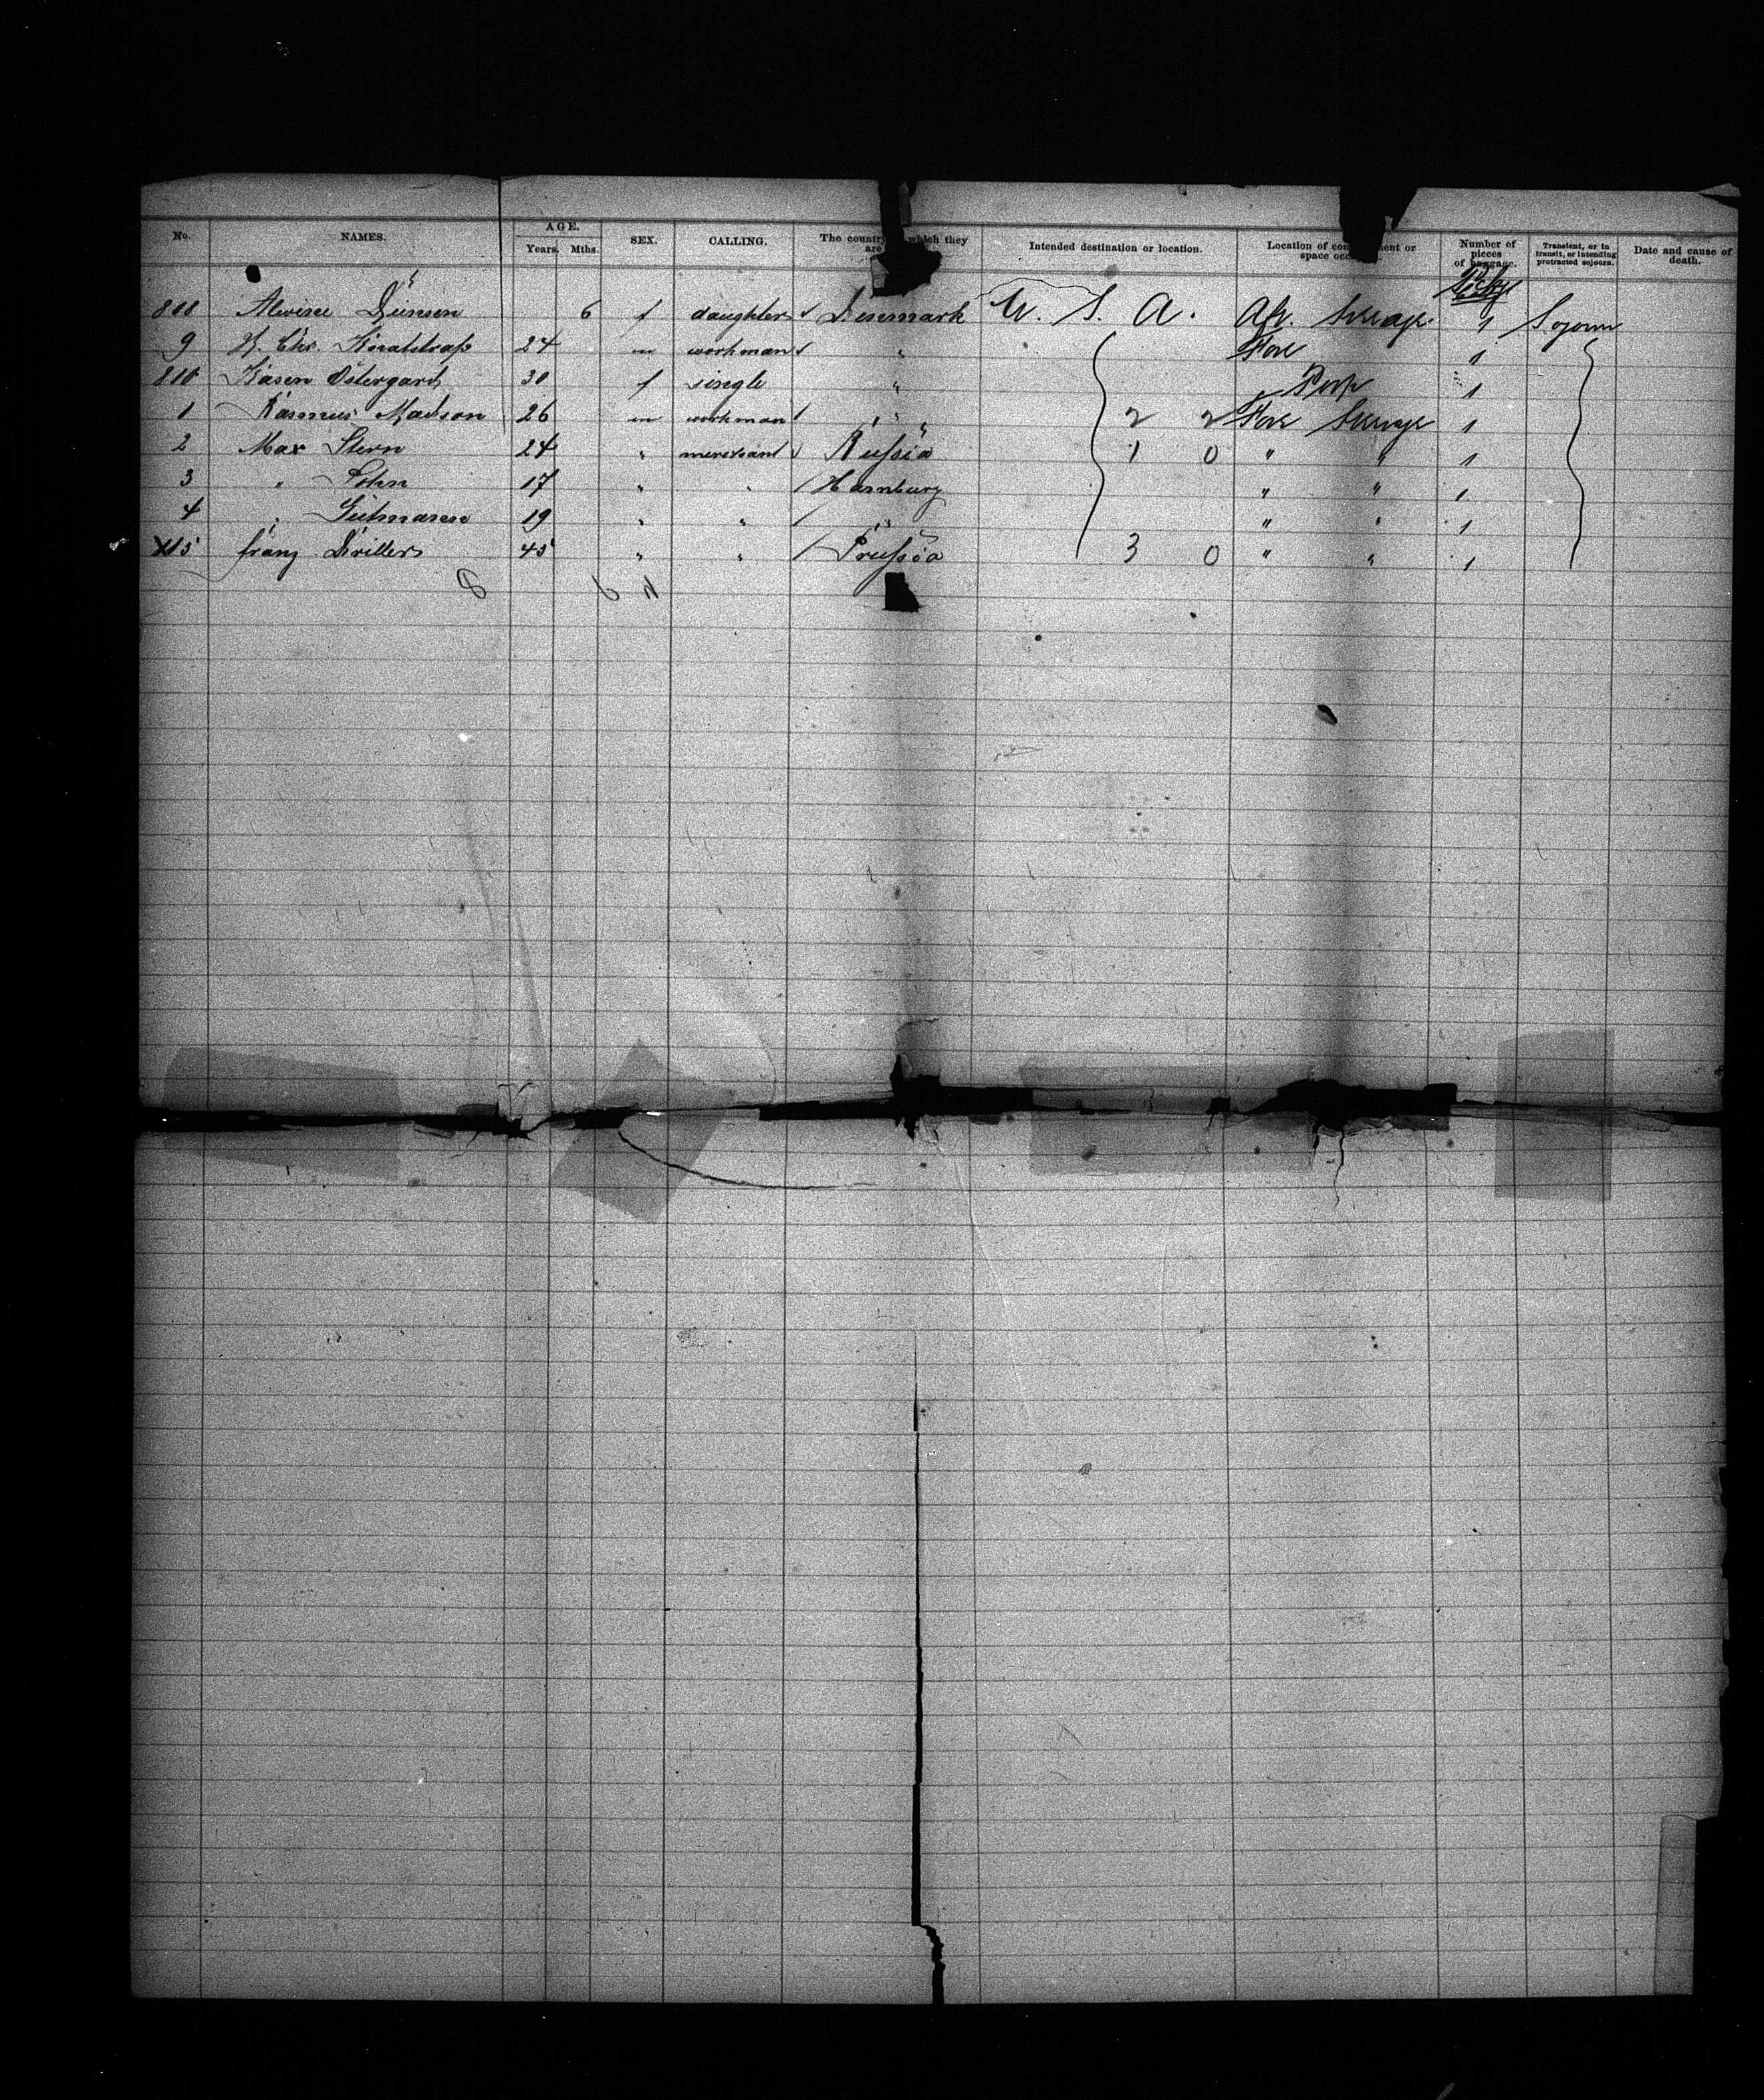 No. NAMES. AGE. Years. Mths. SEX. CALLING. The country which they are Intended destination or location. Location of or space Number of pieces of baggage. Transient, or in transit, or intending protracted sojourn. Date and cause of death.
808 6 f daughter Denmark U. S. A. Aft. Steerage 1 Sojourn
9 24 m workman " Fore 1
810 Kasen Ostergard 30 f single " Poop 1
1 Rasmus Madson 26 m workman " " 2 2 Fore Steerage 1
2 Max Stern 24 " merchant Russia 1 0 " " 1
3 " Sohn 17 " " Hamburg " " 1
4 " Gutmann 19 " " " " " 1
815 franz Driller 45 " " Prussia 3 0 " " 1
8 6